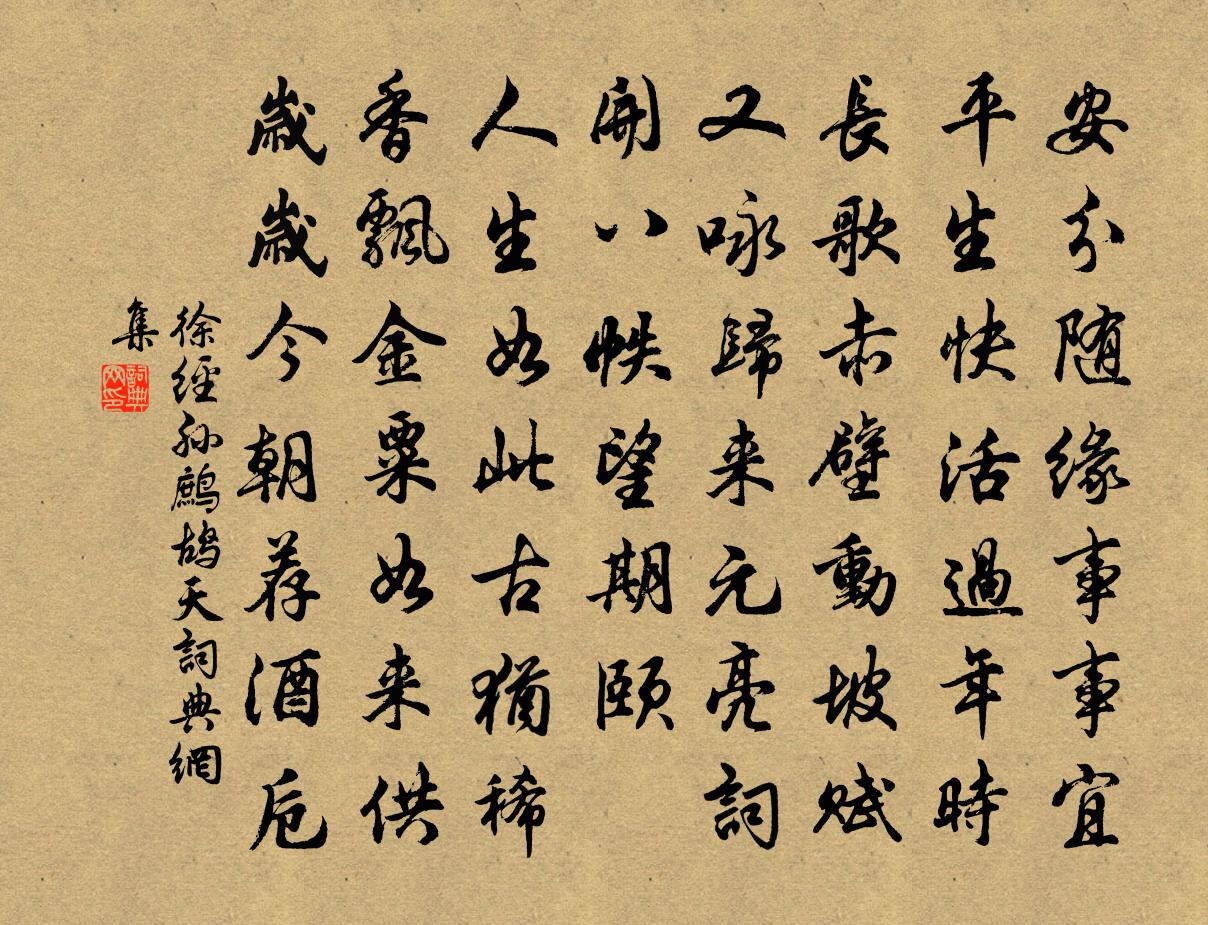 安分随緣事事宜
平生快活過年時
長歌赤壁動坡賦
又咏歸来元亮詞
開八帙望期頤
人生如此古猶稀
香飄金粟如来供
歲歲今朝荐酒卮
徐經孙鷓鴣天詞典網
集
詞典网印